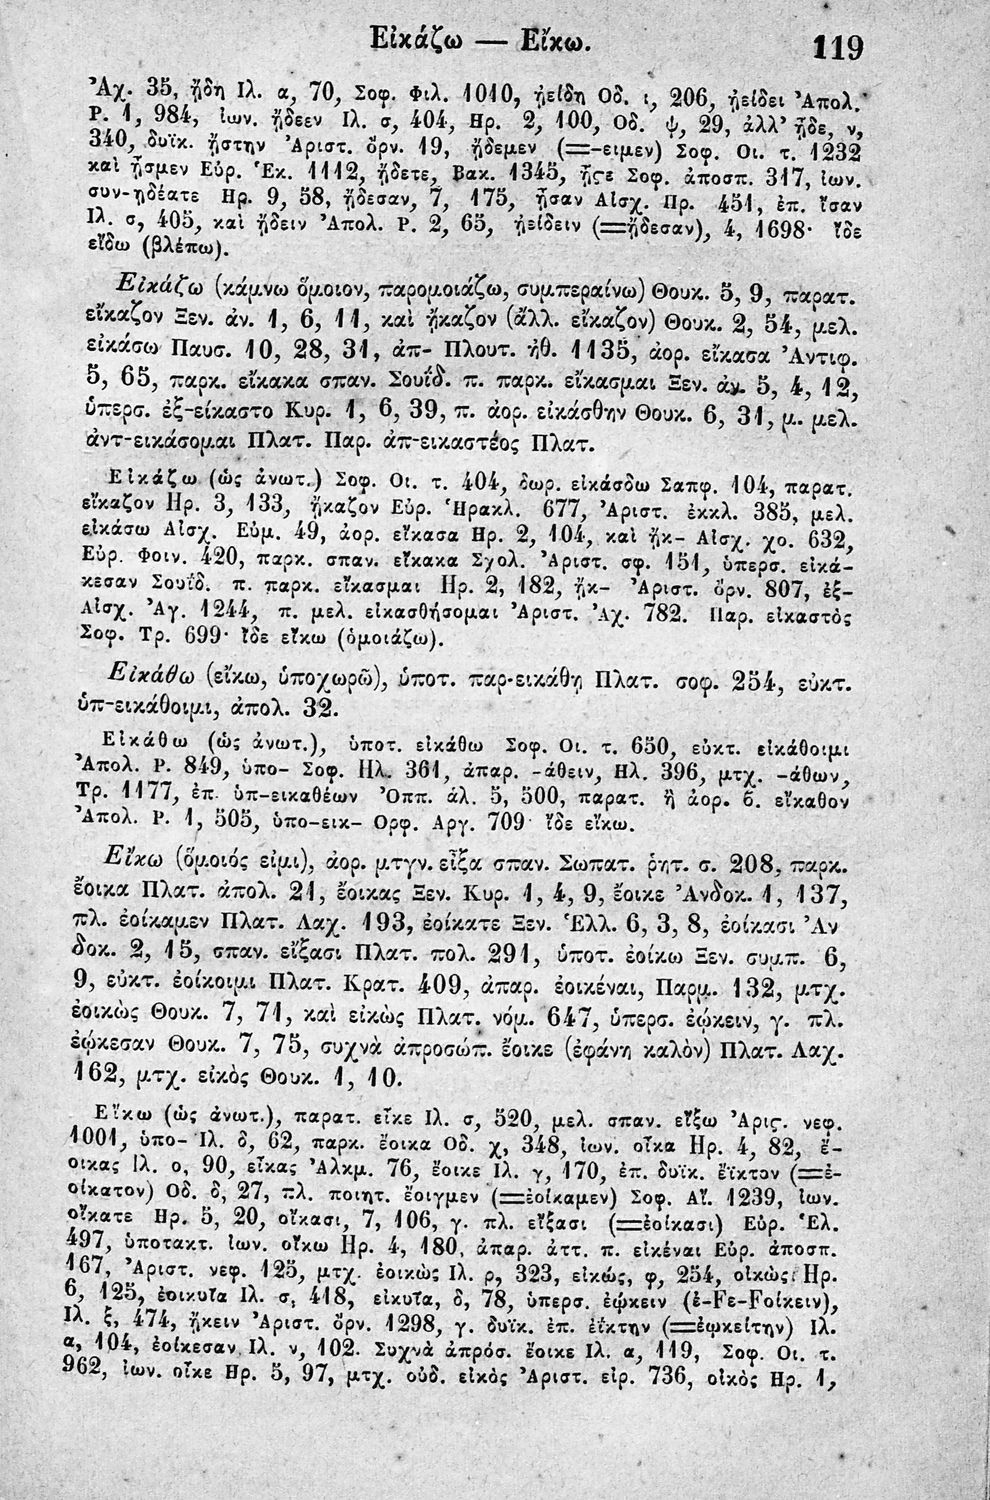 Εἰκάζω — Εἴκω.
119
Ἀχ. 35, ᾔδη Ιλ. α, 70, Σοφ. Φιλ. 1010, ᾐείδη Οδ. ι, 206, ᾐείδει Ἀπολ.
Ρ. 1, 984, ἰων. ᾔδεεν Ιλ. σ, 404, Ηρ. 2, 100, Οδ. ψ, 29, ἀλλ' ᾖδε, ν,
340, δυϊκ. ᾔστην Ἀριστ. ὄρν. 19, ᾔδεμεν (=-ειμεν) Σοφ. Οι. τ. 1232
καὶ ᾖσμεν Εὐρ. Ἑκ. 1112, ᾔδετε, Βακ. 1345, ᾖϛε Σοφ. ἀποσπ. 317, ἰων.
συν-ῃδέατε Ηρ. 9, 58, ᾔδεσαν, 7, 175, ᾖσαν Αἰσχ. Πρ. 451, ἐπ. ἴσαν
Ιλ. σ, 405, καὶ ᾔδειν Ἀπολ. Ρ. 2, 65, ᾐείδειν (=ᾔδεσαν), 4, 1698· ἴδε
εἴδω (βλέπω).
Εἰκάζω (κάμνω ὅμοιον, παρομοιάζω, συμπεραίνω) Θουκ. 5, 9, παρατ.
εἴκαζον Ξεν. ἀν. 1, 6, 11, καὶ ᾔκαζον (ἄλλ. εἴκαζον) Θουκ. 2, 54, μελ.
εἰκάσω Παυσ. 10, 28, 31, ἀπ- Πλουτ. ἠθ. 1135, ἀορ. εἴκασα Ἀντιφ.
5, 65, παρκ. εἴκακα σπαν. Σουΐδ. π. παρκ. εἴκασμαι Ξεν. ἀν. 5, 4, 12,
ὑπερσ. ἐξ-είκαστο Κυρ. 1, 6, 39, π. ἀορ. εἰκάσθην Θουκ. 6, 31, μ. μελ.
ἀντ-εικάσομαι Πλατ. Παρ. ἀπ-εικαστέος Πλατ.
Εἰκάζω (ὡς ἀνωτ.) Σοφ. Οι. τ. 404, δωρ. εἰκάσδω Σαπφ. 104, παρατ.
εἴκαζον Ηρ. 3, 133, ᾔκαζον Εὐρ. Ἡρακλ. 677, Ἀριστ. ἐκκλ. 385, μελ.
εἰκάσω Αἰσχ. Εὐμ. 49, ἀορ. εἴκασα Ηρ. 2, 104, καὶ ᾔκ- Αἰσχ. χο. 632,
Εὐρ. Φοιν. 420, παρκ. σπαν. εἴκακα Σχολ. Ἀριστ. σφ. 151, ὑπερσ. εἰκά-
κεσαν Σουΐδ. π. παρκ. εἴκασμαι Ηρ. 2, 182, ᾔκ- Ἀριστ. ὄρν. 807, ἐξ-
Αἰσχ. Ἀγ. 1244, π. μελ. εἰκασθήσομαι Ἀριστ. Ἀχ. 782. Παρ. εἰκαστὸς
Σοφ. Τρ. 699· ἴδε εἴκω (ὁμοιάζω).
Εἰκάθω (εἴκω, ὑποχωρῶ), ὑποτ. παρ-εικάθῃ Πλατ. σοφ. 254, εὐκτ.
ὑπ-εικάθοιμι, ἀπολ. 32.
Εἰκάθω (ὡς ἀνωτ.), ὑποτ. εἰκάθω Σοφ. Οι. τ. 650, εὐκτ. εἰκάθοιμι
Ἀπολ. Ρ. 849, ὑπο- Σοφ. Ηλ. 361, ἀπαρ. -άθειν, Ηλ. 396, μτχ. -άθων,
Τρ. 1177, ἐπ. ὑπ-εικαθέων Ὀππ. ἁλ. 5, 500, παρατ. ἢ ἀορ. β. εἴκαθον
Ἀπολ. Ρ. 1, 505, ὑπο-εικ- Ορφ. Αργ. 709· ἴδε εἴκω.
Εἴκω (ὅμοιός εἰμι), ἀορ. μτγν. εἶξα σπαν. Σωπατ. ῥητ. σ. 208, παρκ.
ἔοικα Πλατ. ἀπολ. 21, ἔοικας Ξεν. Κυρ. 1, 4, 9, ἔοικε Ἀνδοκ. 1, 137,
πλ. ἐοίκαμεν Πλατ. Λαχ. 193, ἐοίκατε Ξεν. Ἑλλ. 6, 3, 8, ἐοίκασι Ἀν
δοκ. 2, 15, σπαν. εἴξασι Πλατ. πολ. 291, ὑποτ. ἐοίκω Ξεν. συμπ. 6,
9, εὐκτ. ἐοίκοιμι Πλατ. Κρατ. 409, ἀπαρ. ἐοικέναι, Παρμ. 132, μτχ.
ἐοικὼς Θουκ. 7, 71, καὶ εἰκὼς Πλατ. νόμ. 647, ὑπερσ. ἐῴκειν, γ. πλ.
ἐῴκεσαν Θουκ. 7, 75, συχνὰ ἀπροσώπ. ἔοικε (ἐφάνη καλὸν) Πλατ. Λαχ.
162, μτχ. εἰκὸς Θουκ. 1, 10.
Εἴκω (ὡς ἀνωτ.), παρατ. εἶκε Ιλ. σ, 520, μελ. σπαν. εἴξω Ἀριϛ. νεφ.
1001, ὑπο- Ἰλ. δ, 62, παρκ. ἔοικα Οδ. χ, 348, ἰων. οἶκα Ηρ. 4, 82, ἔ-
οικας Ιλ. ο, 90, εἶκας Ἀλκμ. 76, ἔοικε Ιλ. γ, 170, ἐπ. δυϊκ. ἔϊκτον (=ἐ-
οίκατον) Οδ. δ, 27, πλ. ποιητ. ἔοιγμεν (=ἐοίκαμεν) Σοφ. Αἴ. 1239, ἰων.
οἴκατε Ηρ. 5, 20, οἴκασι, 7, 106, γ. πλ. εἴξασι (=ἐοίκασι) Εὐρ. Ἑλ.
497, ὑποτακτ. ἰων. οἴκω Ηρ. 4, 180, ἀπαρ. ἀττ. π. εἰκέναι Εὐρ. ἀποσπ.
167, Ἀριστ. νεφ. 125, μτχ. ἐοικὼς Ιλ. ρ, 323, εἰκώς, φ, 254, οἰκὼς Ηρ.
6, 125, ἐοικυῖα Ιλ. σ, 418, εἰκυῖα, δ, 78, ὑπερσ. ἐῴκειν (ἐ-Fε-Fοίκειν),
Ιλ. ξ, 474, ᾔκειν Ἀριστ. ὄρν. 1298, γ. δυϊκ. ἐπ. ἐΐκτην (=ἐῳκείτην) Ιλ.
α, 104, ἐοίκεσαν Ιλ. ν, 102. Συχνὰ ἀπρόσ. ἔοικε Ιλ. α, 119, Σοφ. Οι. τ.
962, ἰων. οἶκε Ηρ. 5, 97, μτχ. οὐδ. εἰκὸς Ἀριστ. εἰρ. 736, οἰκὸς Ηρ. 1,